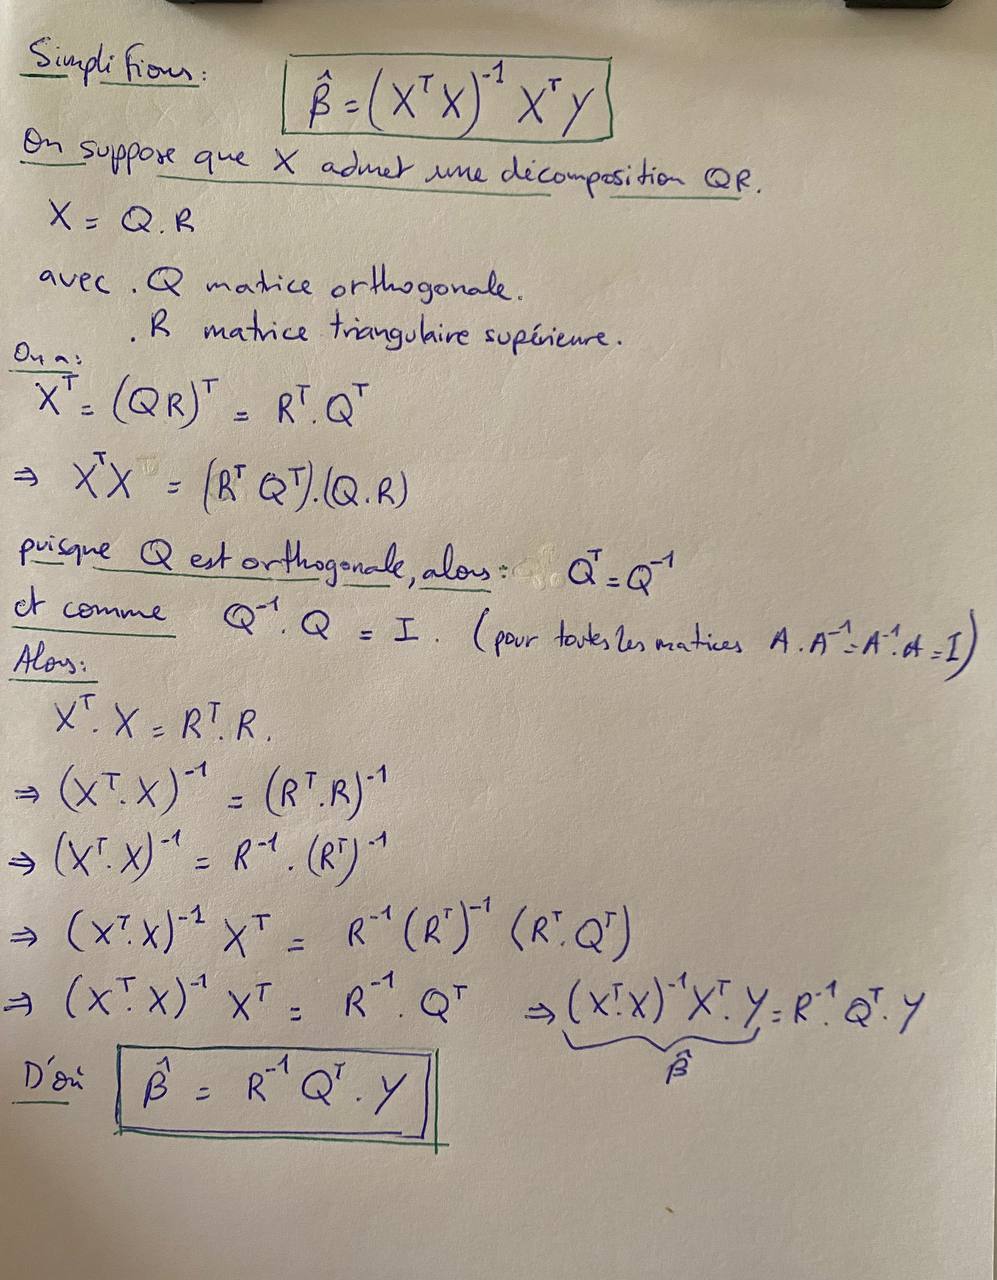 Simplifions:
β̂ = (XᵀX)⁻¹ XᵀY
On suppose que X admet une décomposition QR.
X = Q.R
avec . Q matrice orthogonale.
. R matrice triangulaire supérieure.
On a:
Xᵀ = (QR)ᵀ = Rᵀ.Qᵀ
⇒ XᵀX = (Rᵀ Qᵀ).(Q.R)
puisque Q est orthogonale, alors: Qᵀ = Q⁻¹
et comme Q⁻¹. Q = I. (pour toutes les matices A.A⁻¹ = A⁻¹.A = I)
Alors:
Xᵀ. X = Rᵀ. R.
⇒ (Xᵀ. X)⁻¹ = (Rᵀ.R)⁻¹
⇒ (Xᵀ. X)⁻¹ = R⁻¹ . (Rᵀ)⁻¹
⇒ (Xᵀ.X)⁻¹ Xᵀ = R⁻¹ (Rᵀ)⁻¹ (Rᵀ. Qᵀ)
⇒ (Xᵀ. X)⁻¹ Xᵀ = R⁻¹ . Qᵀ ⇒ (Xᵀ.X)⁻¹ Xᵀ. Y = R⁻¹. Qᵀ. Y
β̂
D'où β̂ = R⁻¹ Qᵀ . Y